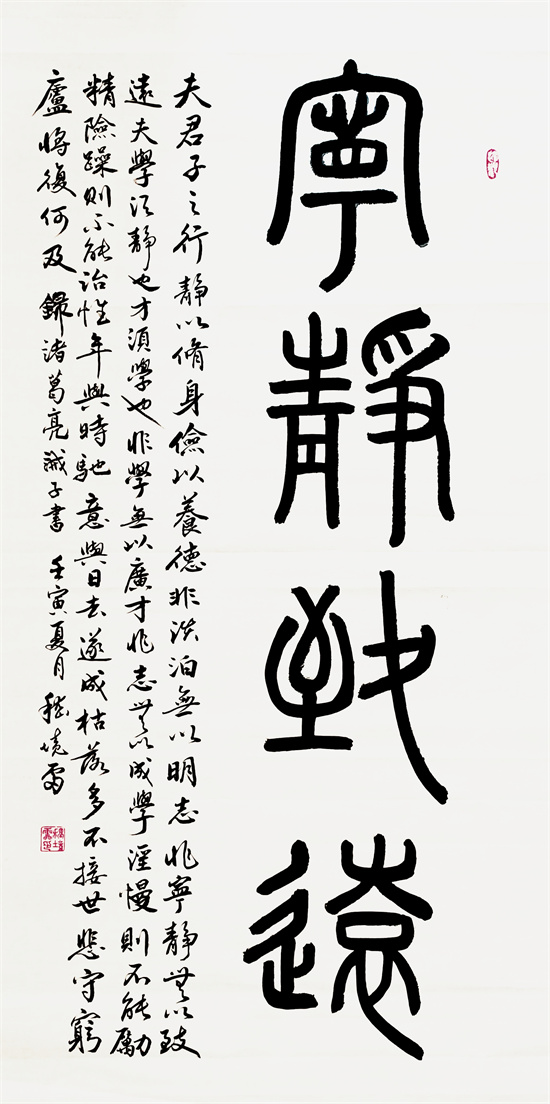 寧靜致遠
夫君子之行靜以脩身儉以養德非淡泊無以明志非寧靜無以致
遠夫學須靜也才須學也非學無以廣才非志無以成學淫慢則不能勵
精險躁則不能治性年與時馳意與日去遂成枯落多不接世悲守窮
廬將復何及錄諸葛亮誡子書壬寅夏月